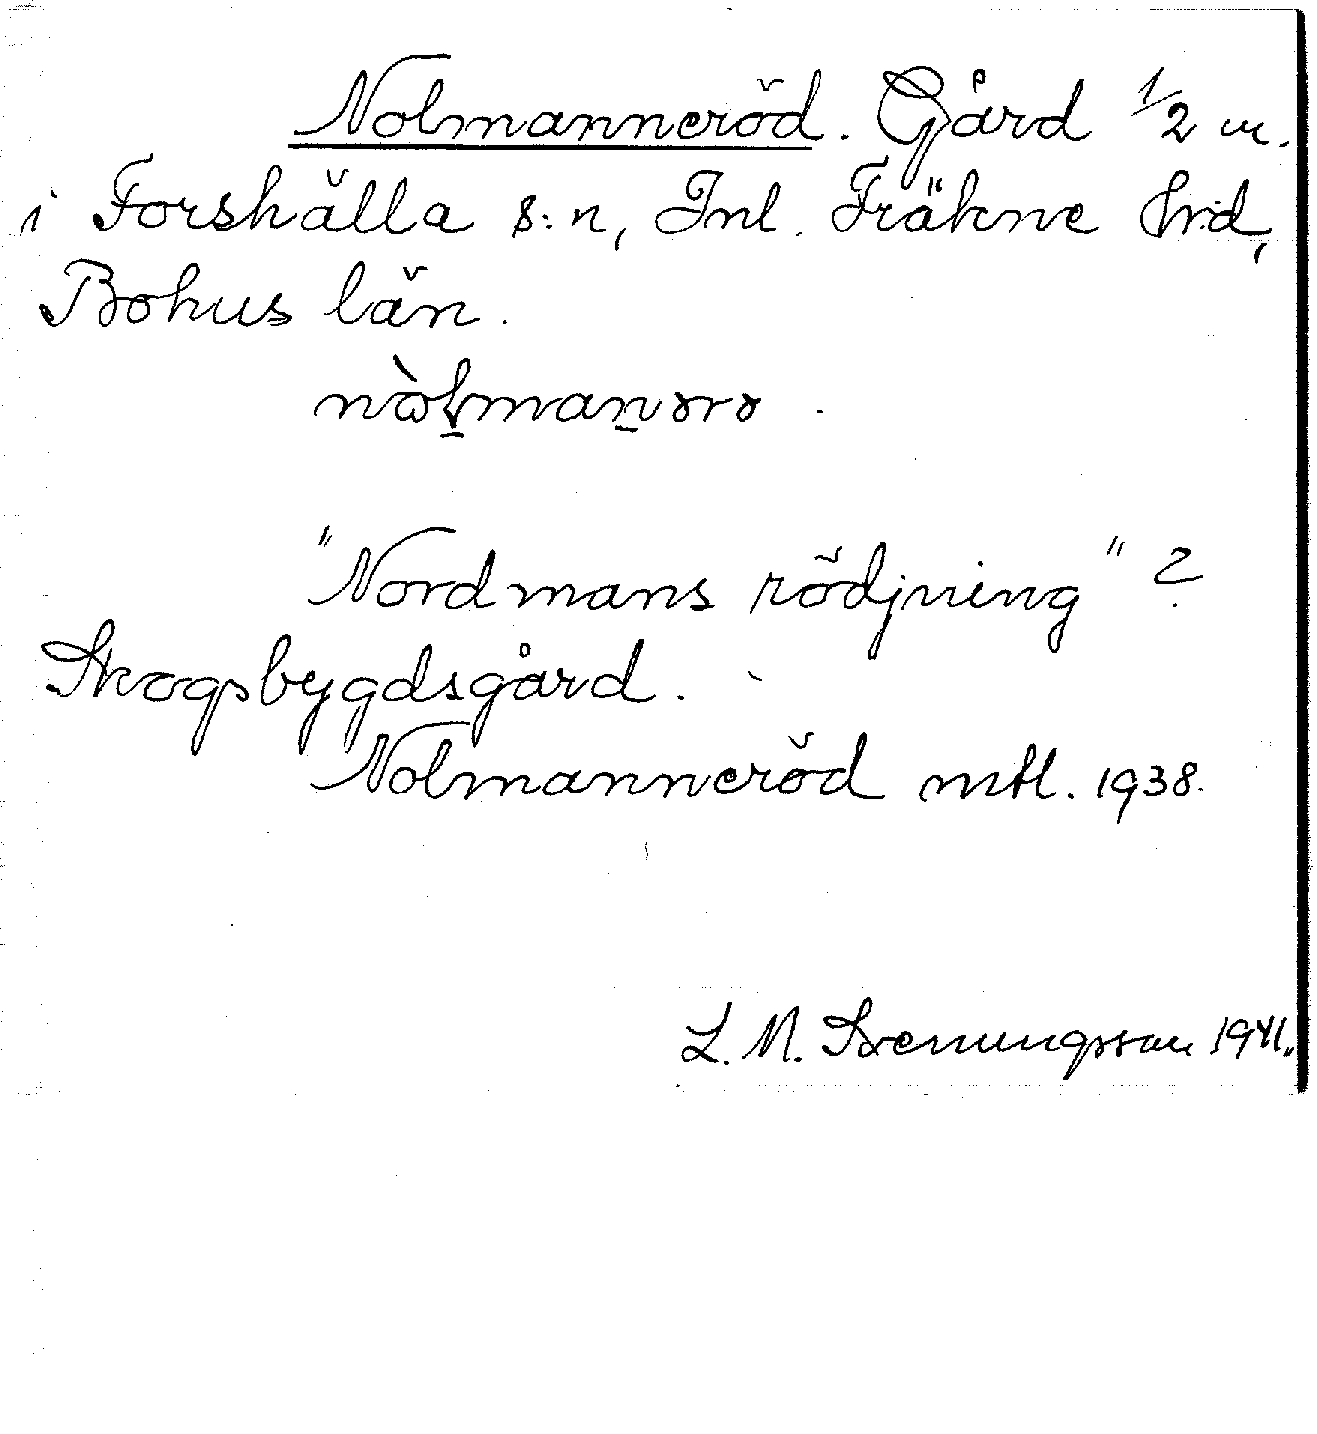 Nolmanneröd. Gård 1/2 m.
i Forshälla s:n, Inl. Fräkne hrd,
Bohus län.
"Nordmans rödjning"?
Skogsbygdsgård.
Nolmanneröd mtl. 1938.
L. M. Svenungsson 1941.